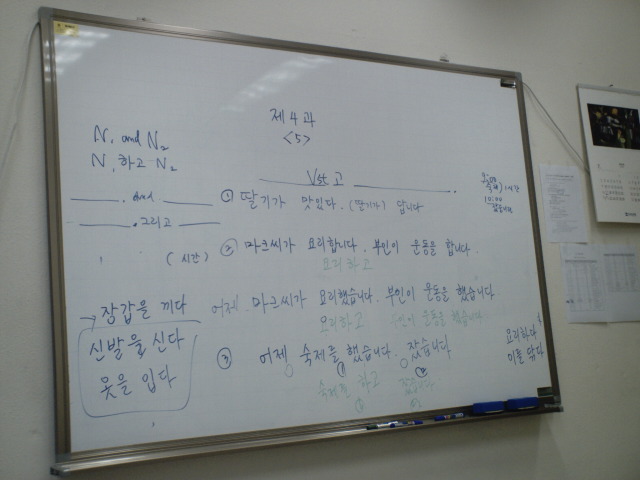 제 4 과
<5>
N₁ and N₂
N₁ 하고 N₂
Vst 고
. and
. 그리고
(시간)
① 딸기가 맛있다. (딸기가) 답니다
1시간
10:00
② 마크씨가 요리합니다. 부인이 운동을 합니다.
요리하고
어제. 마크씨가 요리했습니다. 부인이 운동을 했습니다
요리하고 부인이 운동을 했습니다
③ 어제 숙제를 했습니다. 잤습니다
① ②
숙제를 하고 잤습니다
① ②
→ 장갑을 끼다
신발을 신다
옷을 입다
요리하다
이를 닦다